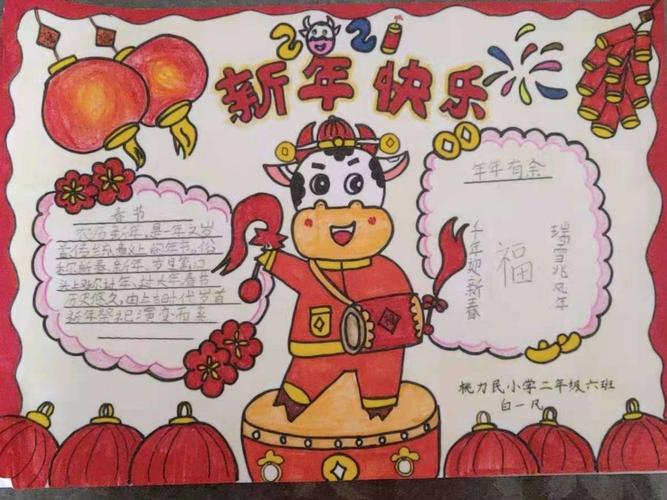 2021
新年快乐
春节
农历新年,是一年之岁
首传统意义上的年节.俗
称新春、新年、岁旦
头上又称过年、过大年春节
历史悠久,由上古时代岁首
祈年祭祀演变而来
年年有余
瑞雪兆丰年
福
千年迎新春
桃力民小学二年级六班
白一凡